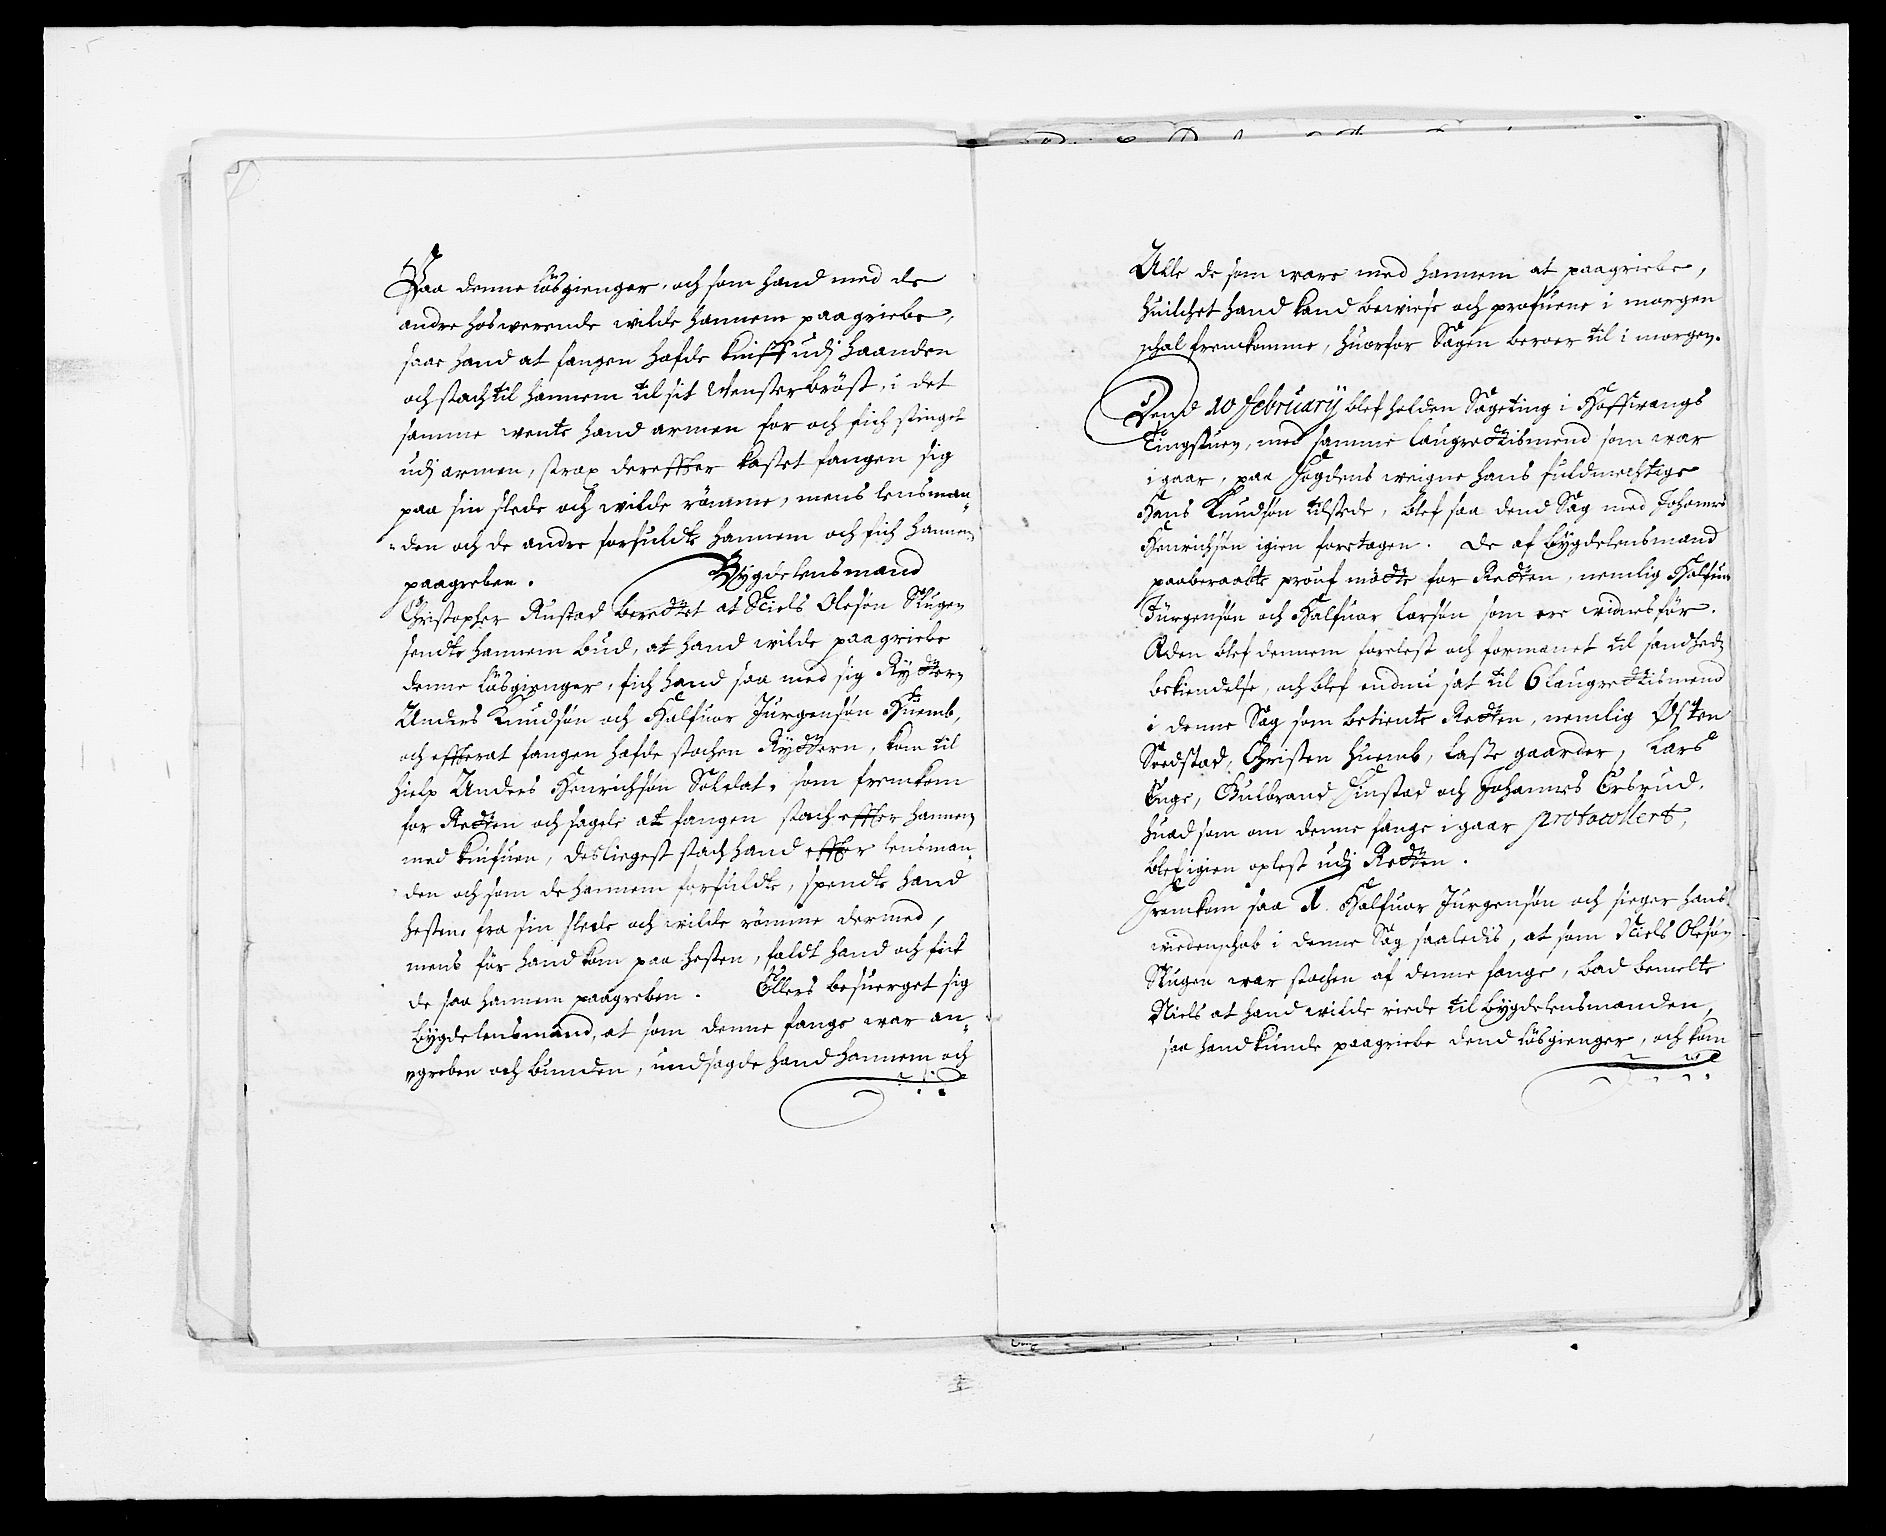 Paa denne løsgienger, och som hand med de
andre hoswerende wilde hannem paagriebe,
saae hand at fangen hafde kniff udj haanden
och stach til hannem til sit Wenster bröst, i det
samme wente hand armen for och fich stinget
udj armen, strax dereffter kastet fangen sig
paa sin slede och wilde römme, mens lensman„
„den och de andre forfuldte hannem och fich hannem
paagreben. Bygdelensmand
Christopher Rustad berettet at Niels Olesön Skugen
sendte hannem bud, at hand wilde paagriebe
denne lösgienger, fich hand saa med sig Rytteren
Anders Knudsön och Halfuor Jurgensön Huemb,
och effter at fangen hafde stochen Rytteren, kom til
hielp Anders Henrichsön Soldat, som fremkom
for Retten och sagde at fangen stach effter hannem
med knifuen, desliegest stach hand effter lensman„
„den och som de hannem forfuldte, spendte hand
hesten fra sin slede och wilde römme dermed,
mens för hand kom paa hesten, faldt hand och fick
de saa hannem paagreben. Ellers besuerget sig
bygdelensmand, at som denne fange war an„
„greben och bunden, undsagde hand hannem och
Alle de som ware med hannem at paagriebe,
huilchet hand kand bewiese och profuene i morgen
schal fremkomme, huorfor Sagen beroer til i morgen.
Dend 10 February blef holden Sageting i Hoffwangs
Tingstuen, med samme laugrettismend som war
i gaar, paa fogdens weigne hans fuldmechtige
Hans Knudsön tilstede, blef saa dend Sag med Johannes
Henrichsön igien foretagen. De af bygdelensmand
paaberaabte prouf mötte for Retten, nemlig Halfuor
Jürgensön och Halfuor Larsön som ere widnesför.
Æden blef dennem forelest och formanet til sandheds
bekiendelse, och blef endnu sat til 6 laugrettismend
i denne Sag som betiente Retten, nemlig Østen
Soedstad, Christen Huemb, Lasse gaarder, Lars
Enge, Gulbrand Finstad och Johannes Ersrud.
Huad som om denne fange i gaar protocollert,
blef igien oplest udj Retten.
Fremkom saa 1. Halfuor Jurgensön och sieger hans
wiedenschab i denne Sag saaledis, at som Niels Olesön
Skugen war stochen af denne fange, bad bemelte
Niels at hand wilde riede til bygdelensmanden,
saa hand kunde paagriebe dend lösgienger, och kom